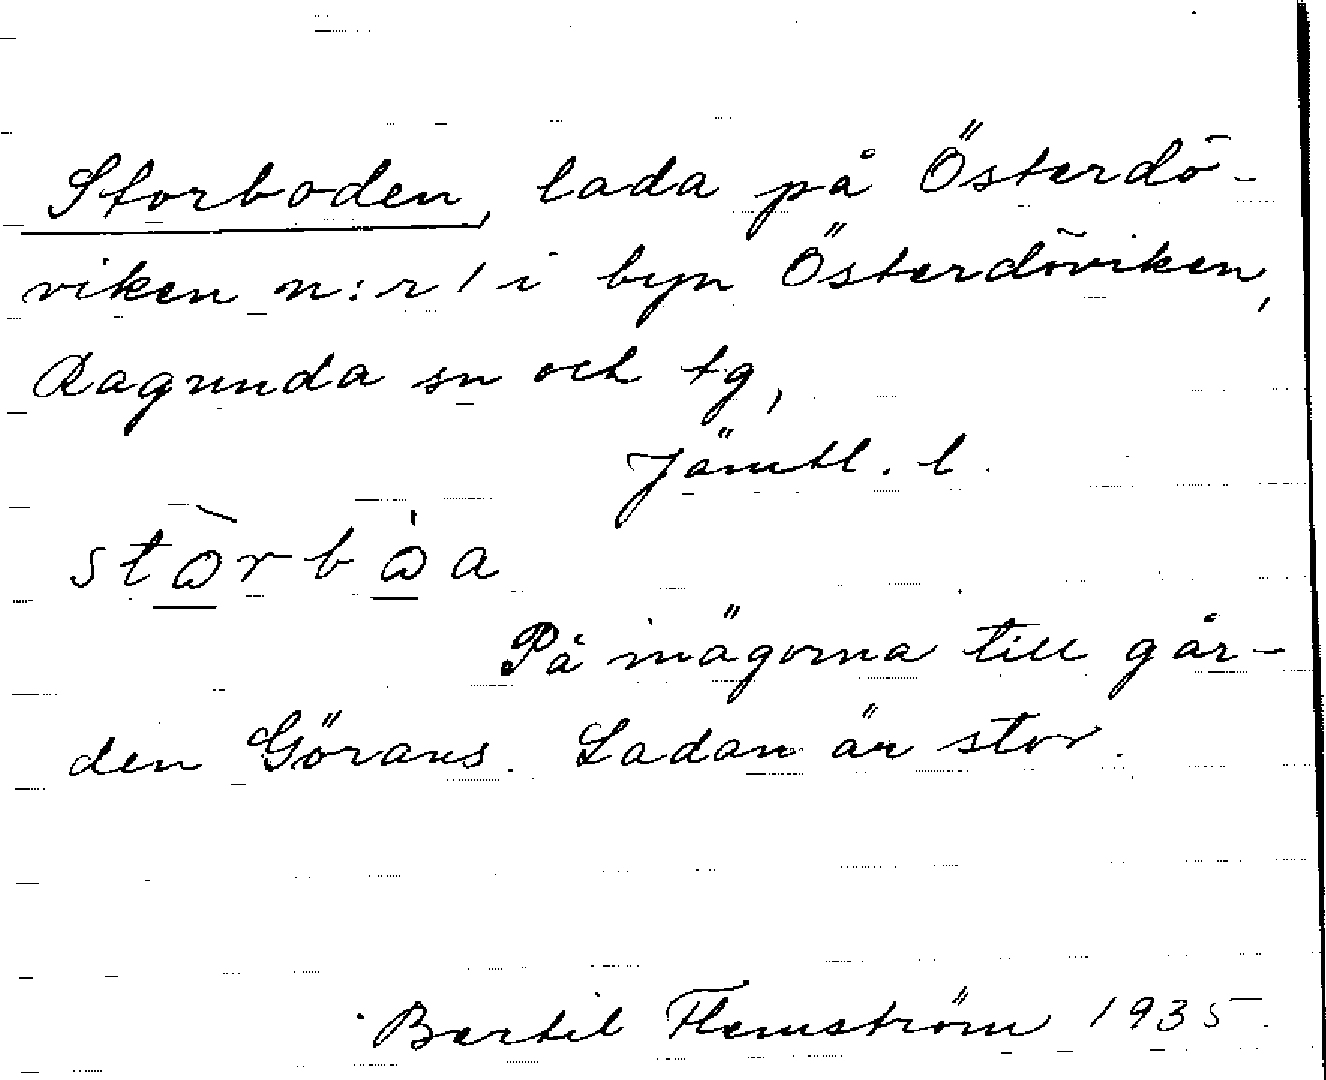 Storboden, lada på Österdö-
viken n:r 1 i byn Österdöviken,
Ragunda sn och tg,
Jämtl. l.
stòrbòa
På inägorna till går-
den Görans. Ladan är stor.
Bertil Flemström 1935.